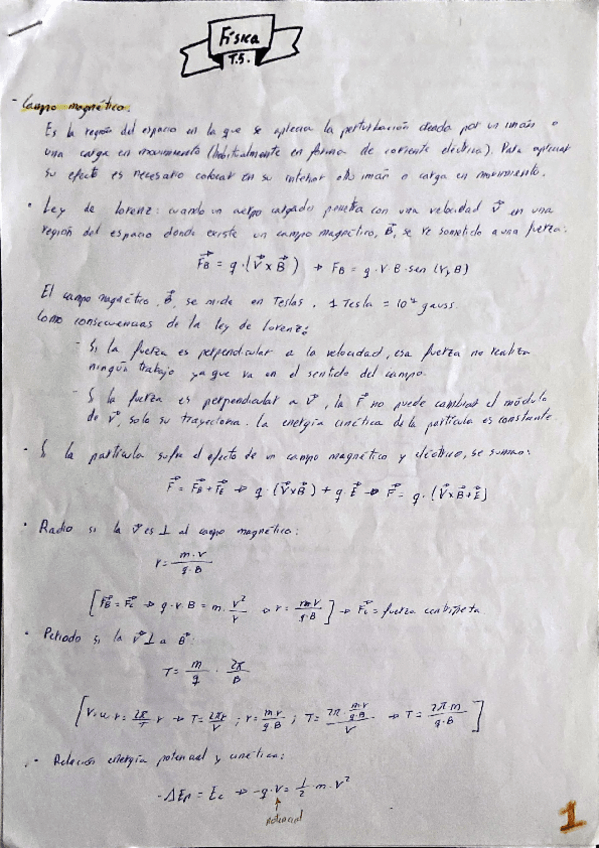 Física
T.5.
- Campo magnético.
Es la región del espacio en la que se aprecia la perturbación creada por un imán o
una carga en movimiento (habitualmente en forma de corriente eléctrica). Para apreciar
su efecto es necesario colocar en su interior otro imán o carga en movimiento.
• Ley de Lorenz: cuando un cuerpo cargado penetra con una velocidad V⃗ en una
región del espacio donde existe un campo magnético, B⃗, se ve sometido a una fuerza:
F⃗B = q·(V⃗ x B⃗) → FB = q·V·B·sen (V, B)
El campo magnético, B⃗, se mide en Teslas. 1 Tesla = 10⁴ gauss.
Como consecuencias de la ley de Lorenz:
- Si la fuerza es perpendicular a la velocidad, esa fuerza no realiza
ningún trabajo ya que va en el sentido del campo.
- Si la fuerza es perpendicular a V⃗, la F⃗ no puede cambiar el módulo
de V⃗, solo su trayectoria. La energía cinética de la partícula es constante.
• Si la partícula sufre el efecto de un campo magnético y eléctrico, se suman:
F⃗ = F⃗B + F⃗E → q·(V⃗xB⃗) + q·E⃗ → F⃗ = q·(V⃗xB⃗+E⃗)
• Radio si la V⃗ es ⊥ al campo magnético:
r = m·v / q·B
[F⃗B = F⃗c → q·v·B = m·v²/r → r = m·v / q·B] → F⃗c = fuerza centrípeta
• Periodo si la V⃗ ⊥ a B⃗:
T = m/q · 2π/B
[V = ω·r = 2π/T · r → T = 2πr/V ; r = mv/q·B ; T = 2π · (mv/q·B) / V → T = 2π m / q·B]
• Relación energía potencial y cinética:
-ΔEp = Ec → -q·V = 1/2 · m·v²
potencial
1